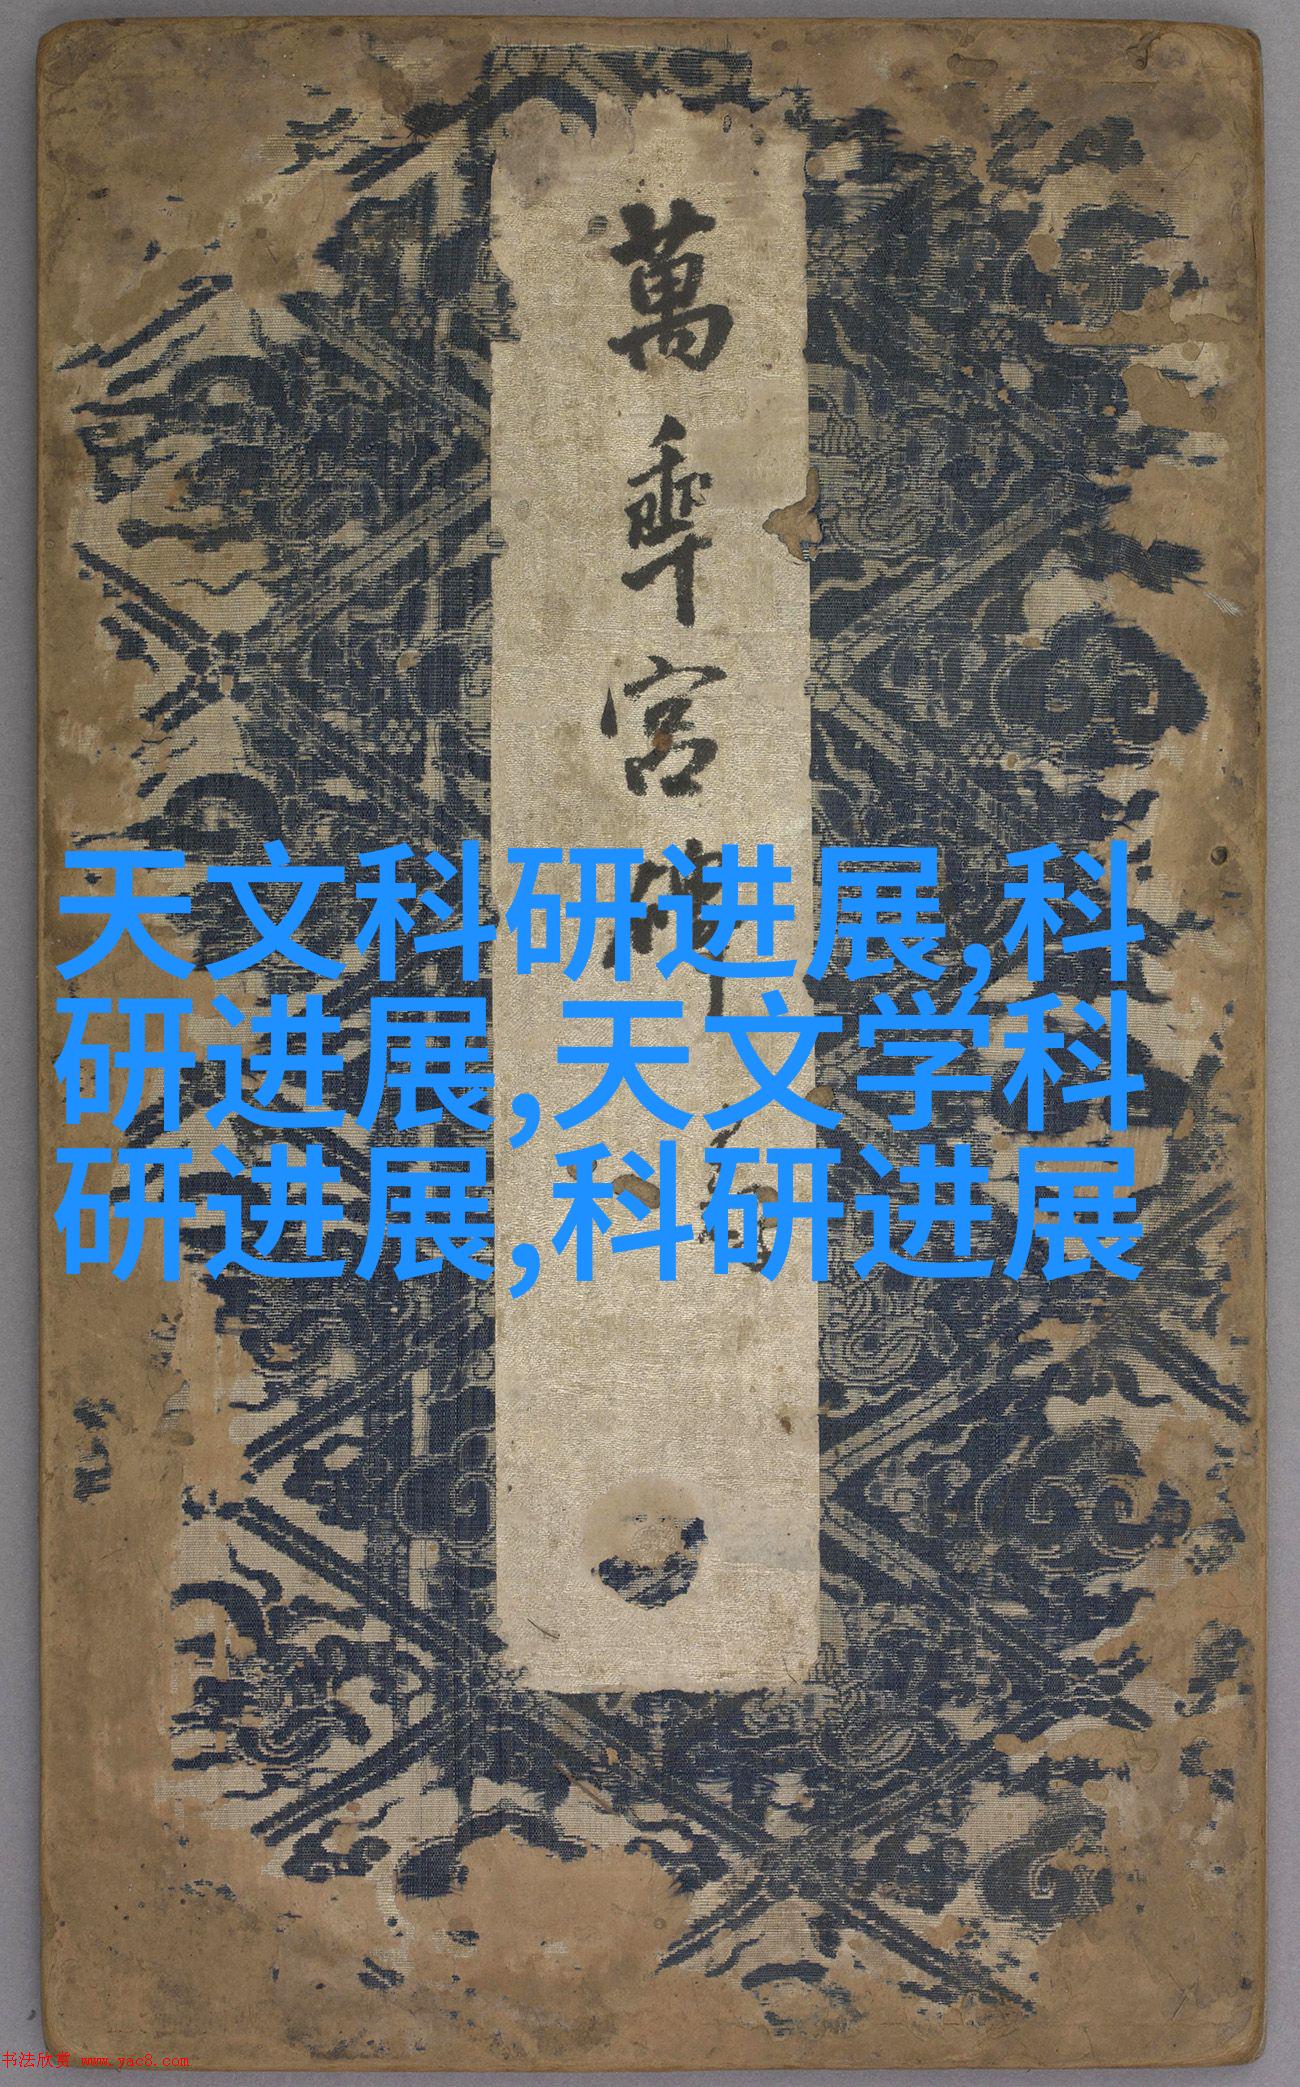 萬年宮碑
天文科研进展,科
研进展,天文学科
研进展,科研进展
书法欣赏 www.yac8.com